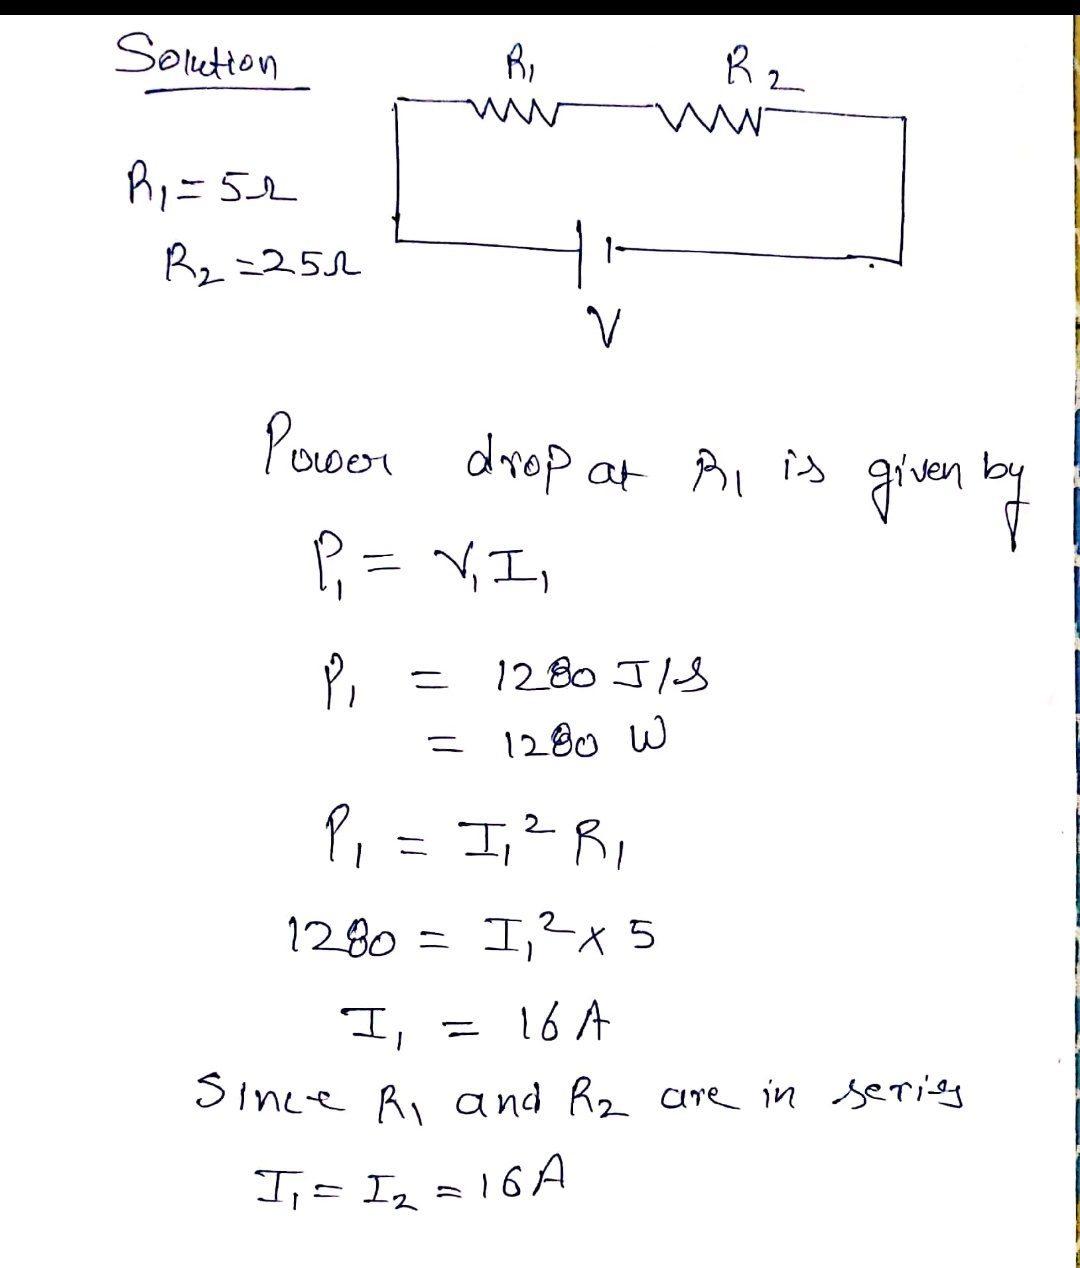 Solution
R₁ R₂
R₁ = 5Ω
R₂ = 25Ω
V
Power drop at R₁ is given by
P₁ = V₁ I₁
P₁ = 1280 J/S
= 1280 W
P₁ = I₁² R₁
1280 = I₁² x 5
I₁ = 16 A
Since R₁ and R₂ are in series
I₁ = I₂ = 16 A